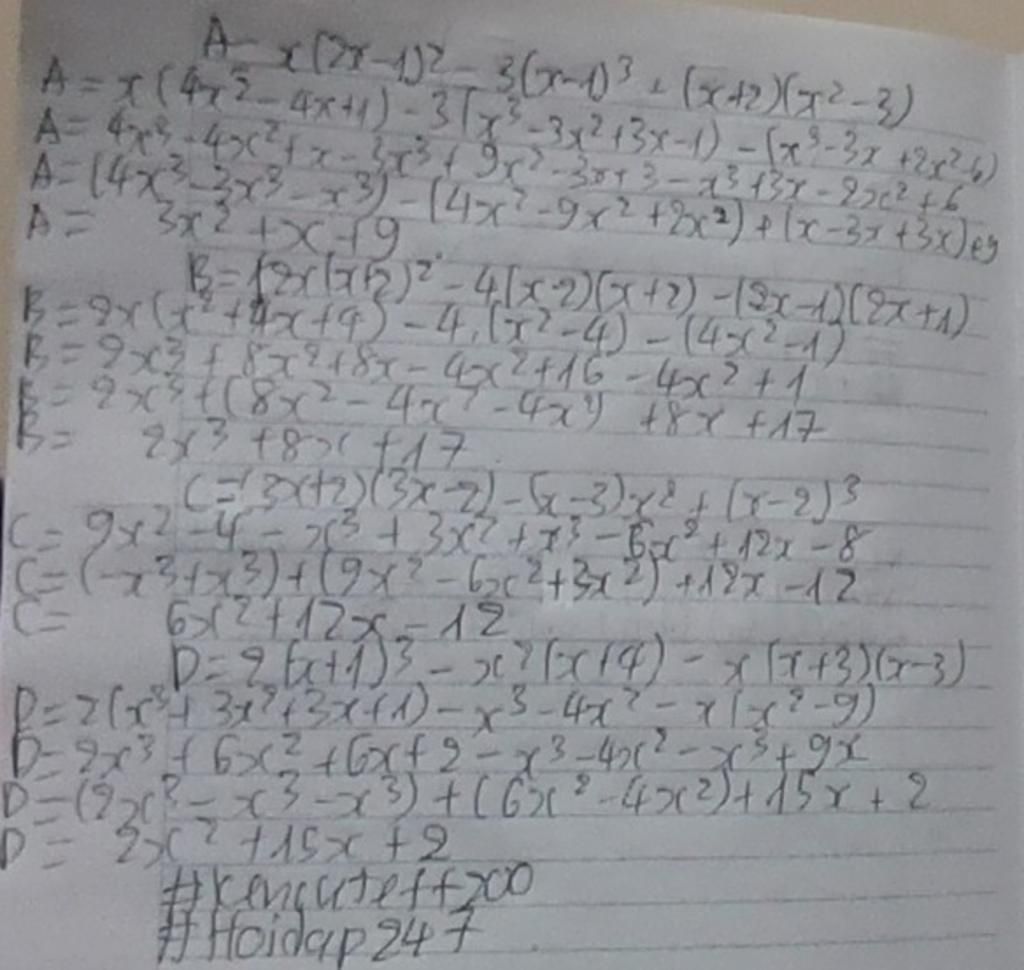 A = x(2x-1)² - 3(x-1)³ - (x+2)(x²-3)
A = x(4x² - 4x+1) - 3(x³ - 3x²+3x-1) - (x³-3x+2x²-6)
A = 4x³ - 4x² + x - 3x³ + 9x² - 3x+3 - x³+3x - 2x² + 6
A = (4x³ - 3x³ - x³) - (4x² - 9x² + 2x²) + (x - 3x + 3x) + 9
A = 3x² + x + 9
B = 2x(x+2)² - 4(x-2)(x+2) - (2x-1)(2x+1)
B = 2x(x²+4x+4) - 4.(x²-4) - (4x²-1)
B = 2x³ + 8x²+8x - 4x²+16 - 4x² + 1
B = 2x³ + (8x² - 4x² - 4x²) + 8x + 17
B = 2x³ + 8x + 17
C = (3x+2)(3x-2) - (x-3)x² + (x-2)³
C = 9x² - 4 - x³ + 3x² + x³ - 6x² + 12x - 8
C = (-x³+x³) + (9x² - 6x²+3x²) + 12x - 12
C = 6x²+12x - 12
D = 2(x+1)³ - x²(x+4) - x(x+3)(x-3)
D = 2(x³+3x²+3x+1) - x³ - 4x² - x(x²-9)
D = 2x³ + 6x² + 6x+2 - x³ - 4x² - x³ + 9x
D = (2x³ - x³ - x³) + (6x² - 4x²) + 15x + 2
D = 2x² + 15x + 2
#kencuteff200
#Hoidap247